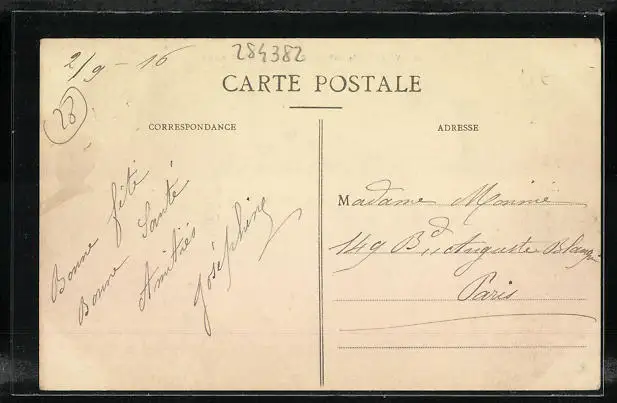 2/9 - 16
284382
28
CARTE POSTALE
CORRESPONDANCE
Bonne fête
Bonne Santé
Amitiés
Joséphine
ADRESSE
Madame Monnie
149 Bd Auguste Blanqui
Paris